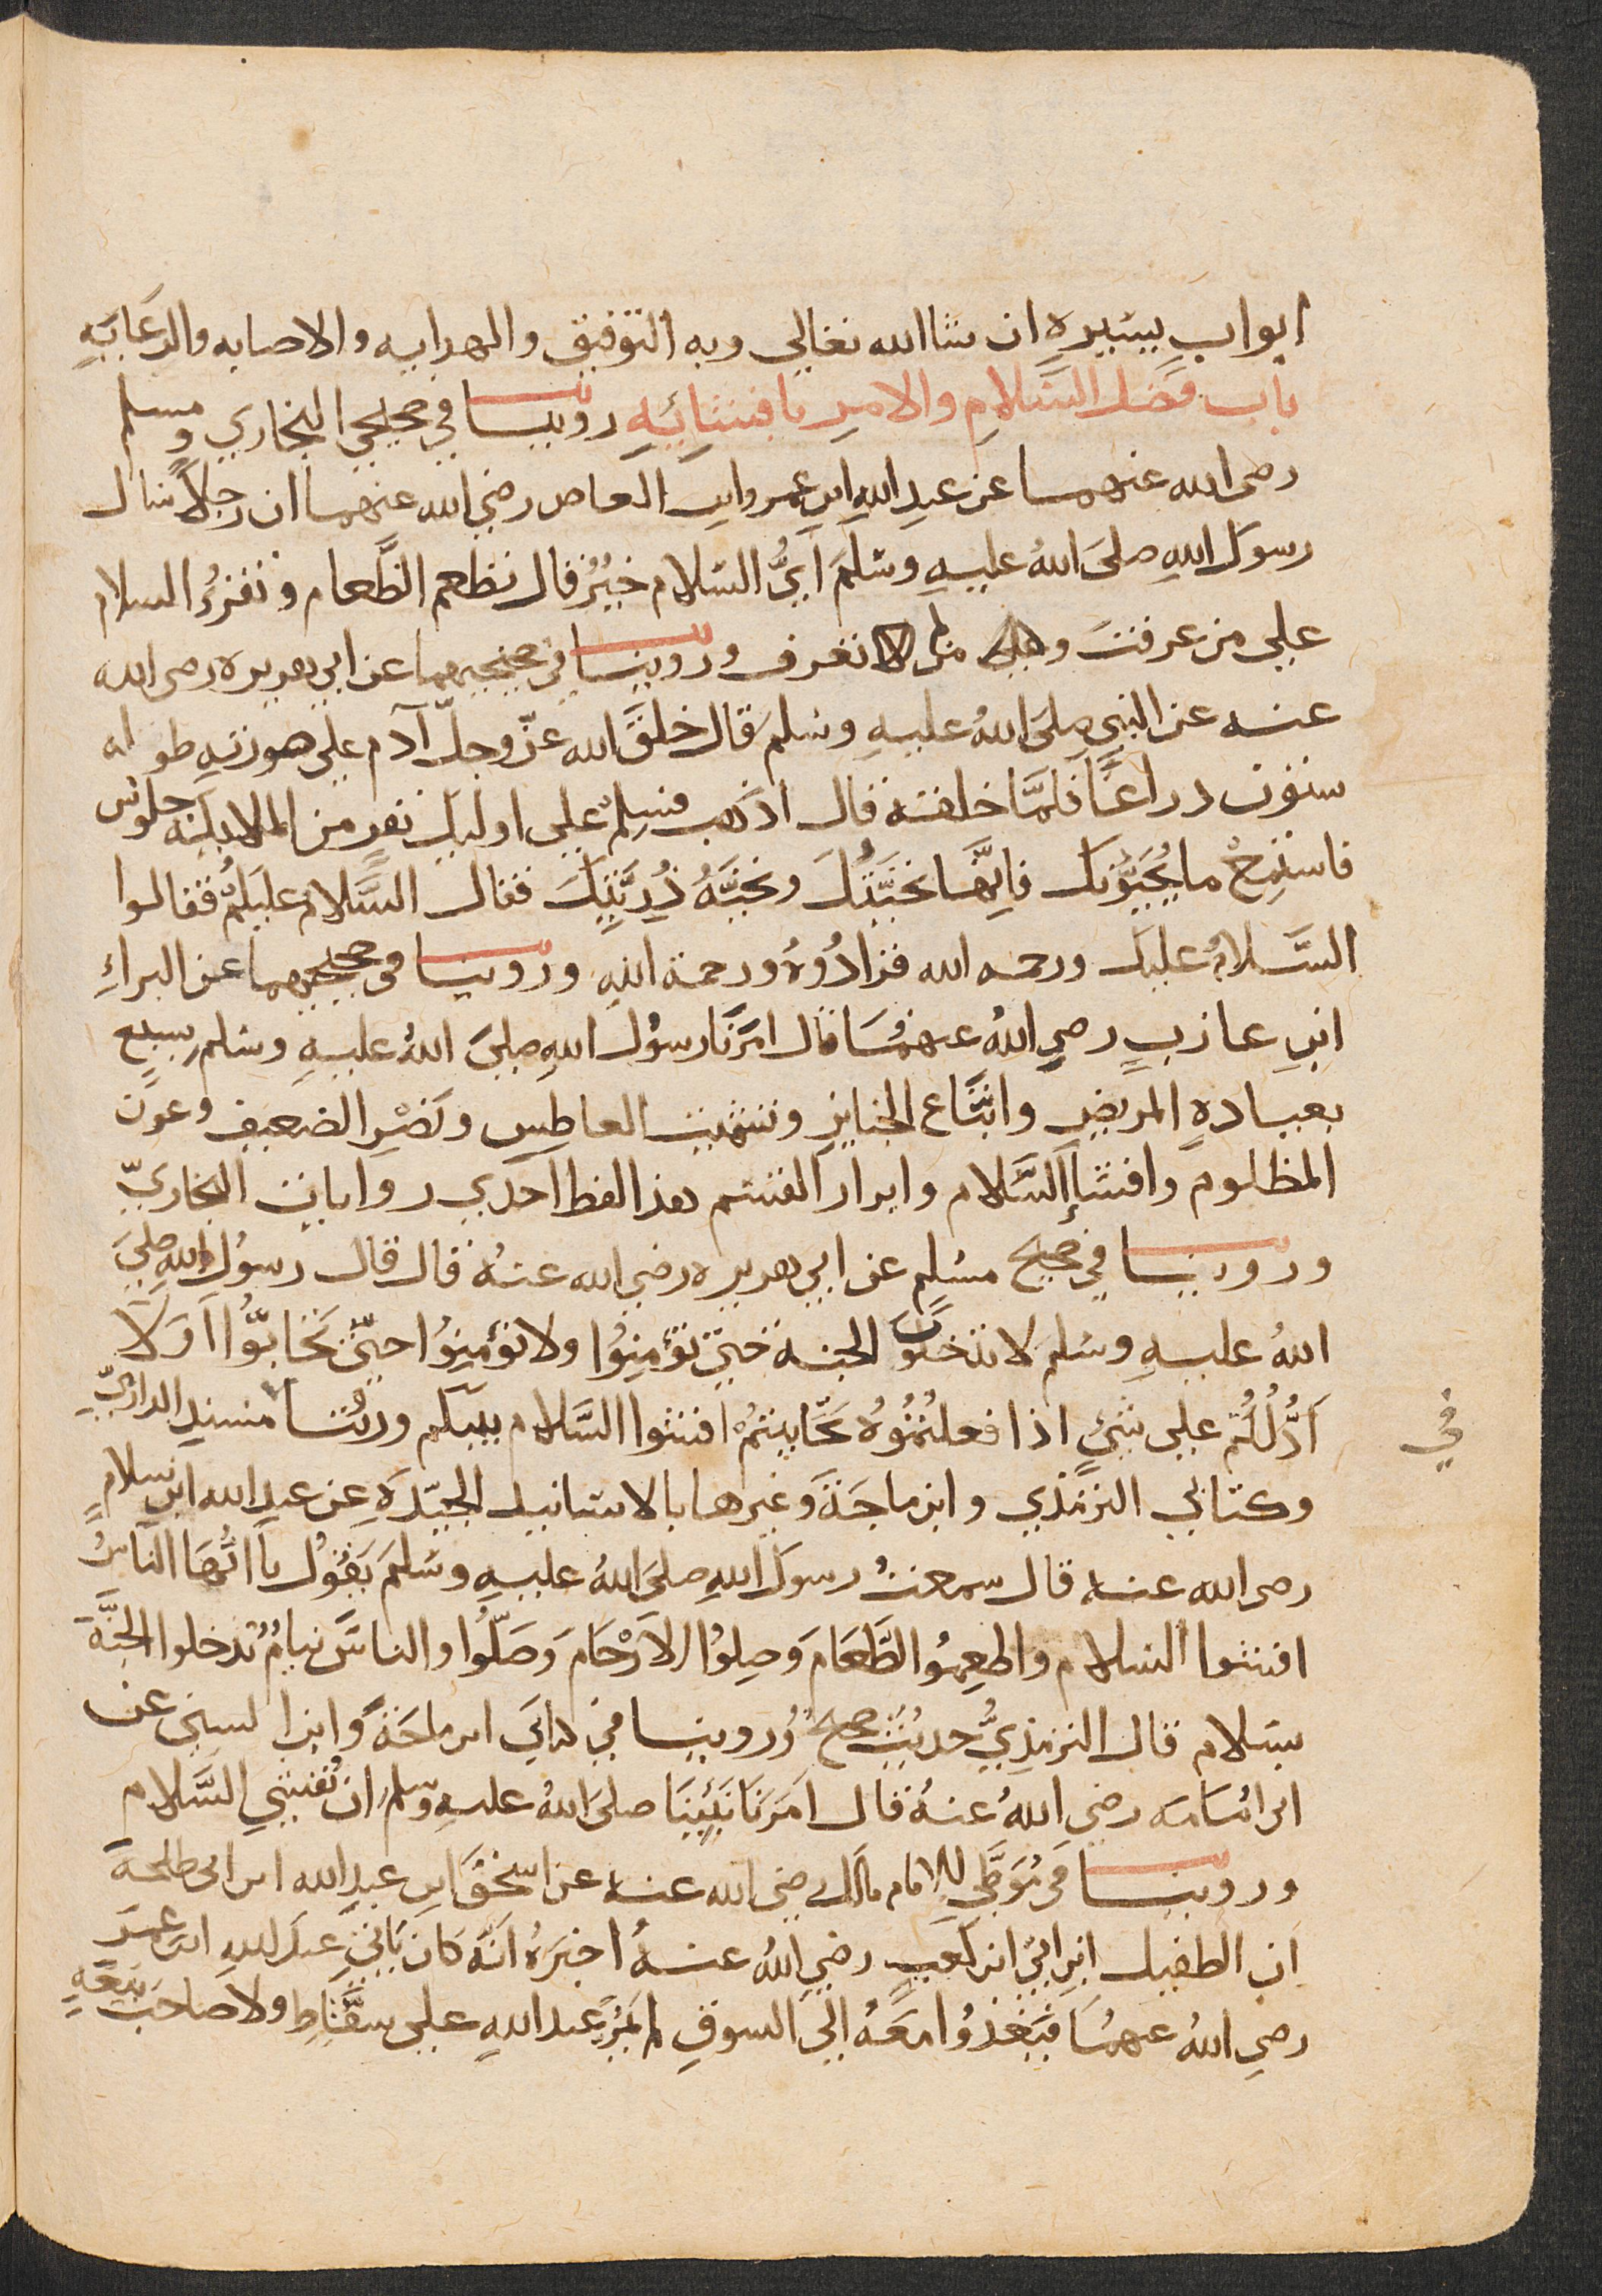 ابواب يسيره ان شا الله تعالي وبه التوفيق والهدايه والاصابه والرعَايَهِ
باب فَضل السَّلامِ والامرِ بافشَائِهِ روينا في صحيحي البخاري ومسلم
رضى الله عنهما عن عبدِ اللهِ ابن عمرو ابن العاص رضي الله عنهما ان رجلاً سَال
رسولَ اللهِ صلىَ اللهُ عليهِ وسَلَمَ اَيُّ السَلام خيْرٌ قال تطعم الطَّعام وتقرُء السلام
علي من عرفتَ وعلى من لا تعرف وروينا في صحيحيهما عن ابي هريره رضى الله
عنه عن النبي صلىَ اللهُ عليهِ وسَلمَ قال خلقَ الله عزّ وجلّ آدم علي صورتهِ طوله
ستون دراعًا فلمَّا خلقه قال اذهَب فسلِّم علي اوليك نفرٍ من الملايكة جلوس
فاستمعْ ما يُحَيُّونك فاِنَّها تحيَّتُكَ وتحيَّهُ ذُريَّتِكَ فقال السَّلام عليكمْ فقالوا
السَّلامُ عليك ورحمه الله فزادُوهُ ورحمة اللهِ وروينا في صحيحيهما عن البراءِ
ابنِ عازبٍ رضي اللهُ عنهمَا قال امَرَنَا رسُول اللهِ صلىَ اللهُ عليهِ وسَلم بسبعٍ
بعيادهِ المريضِ واتِّبَاع الجنايزِ وتشميت العاطِسِ ونَصْرِ الضعيفِ وعون
المظلوم وافشَاءِ السَّلام وابرار القسَم هذا لفظ احدَي روايات البخاريّ
وروينا في صحيح مسُلِم عن ابي هريره رضي الله عنهُ قال قال رسوُل اللهِ صلىَ
اللهُ عليهِ وسَلم لا تدخلون الجنه حتىَ تؤمِنوُا ولا تؤمِنوُا حتىّ تَحَابوُّا اَوَلا
اَدُلُّكُم علي شئٍ اذا فعلتمُوُهُ تحَابَبتمُ افشوا السَّلام بينكم وروُينَا مسند الدارميّ
في
وكتابي الترمذي وابن ماجَةَ وغيرها بالاسَانيد الجيّدَهِ عن عبد الله ابن سلامٍ
رضى الله عنه قال سمعتُ رسولَ اللهِ صلىَ اللهُ عليهِ وسَلمَ يَقوُل ياَ ايُّهَا الناسُ
افشوا السَلام واطعِموُا الطَّعَامَ وَصِلوُا الاَرْحَامَ وَصَلّوُا والناسَ نيامُ تدخلوا الجنَّةَ
بسَلام قال الترمذِيُّ حديثٌ صحيحٌ وُروينا في كتابَي ابن ماجَةَ وابن السني عن
ابي امُامَه رضي اللهُ عنهُ قال امَرَنَا نَبيُّنَا صلىَ اللهُ عليهِ وسَلمَ ان نُفشي السَّلام
وروينا في مُوَطَّيِ للامام مالك رضي الله عنه عن اسحٰقَ ابن عبدِ الله ابن ابي طلحة
ان الطفيل ابنِ ابيِّ ابن كعبٍ رضي اللهُ عنهُ اخبرَهُ انّهُ كان يَاتي عبدَ اللهِ ابن عمَر
رضي اللهُ عنهمَا فيَغدُوُا معَهُ الي السوقِ لم يَمُرّ عبد اللهِ علي سَقَّاطٍ ولا صاحب بَيعَةٍ